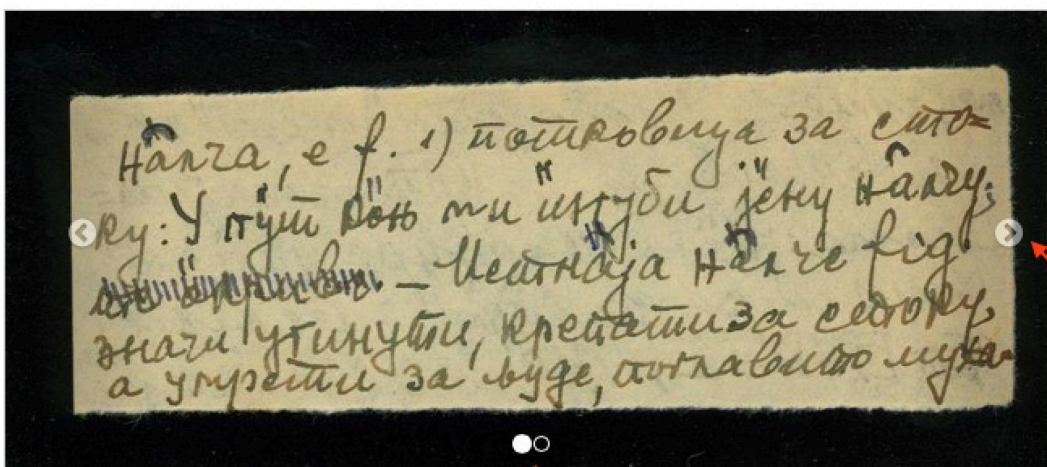 На̑лча, е f. 1) потковица за сто=
ку: У пу̏т ко̏њ ми и̏згуби је̏ну на̑лчу;
— Испина̏ја на̑лче fig.
значи угинути, крепати за стоку,
а умрети за људе, поглавито муха-